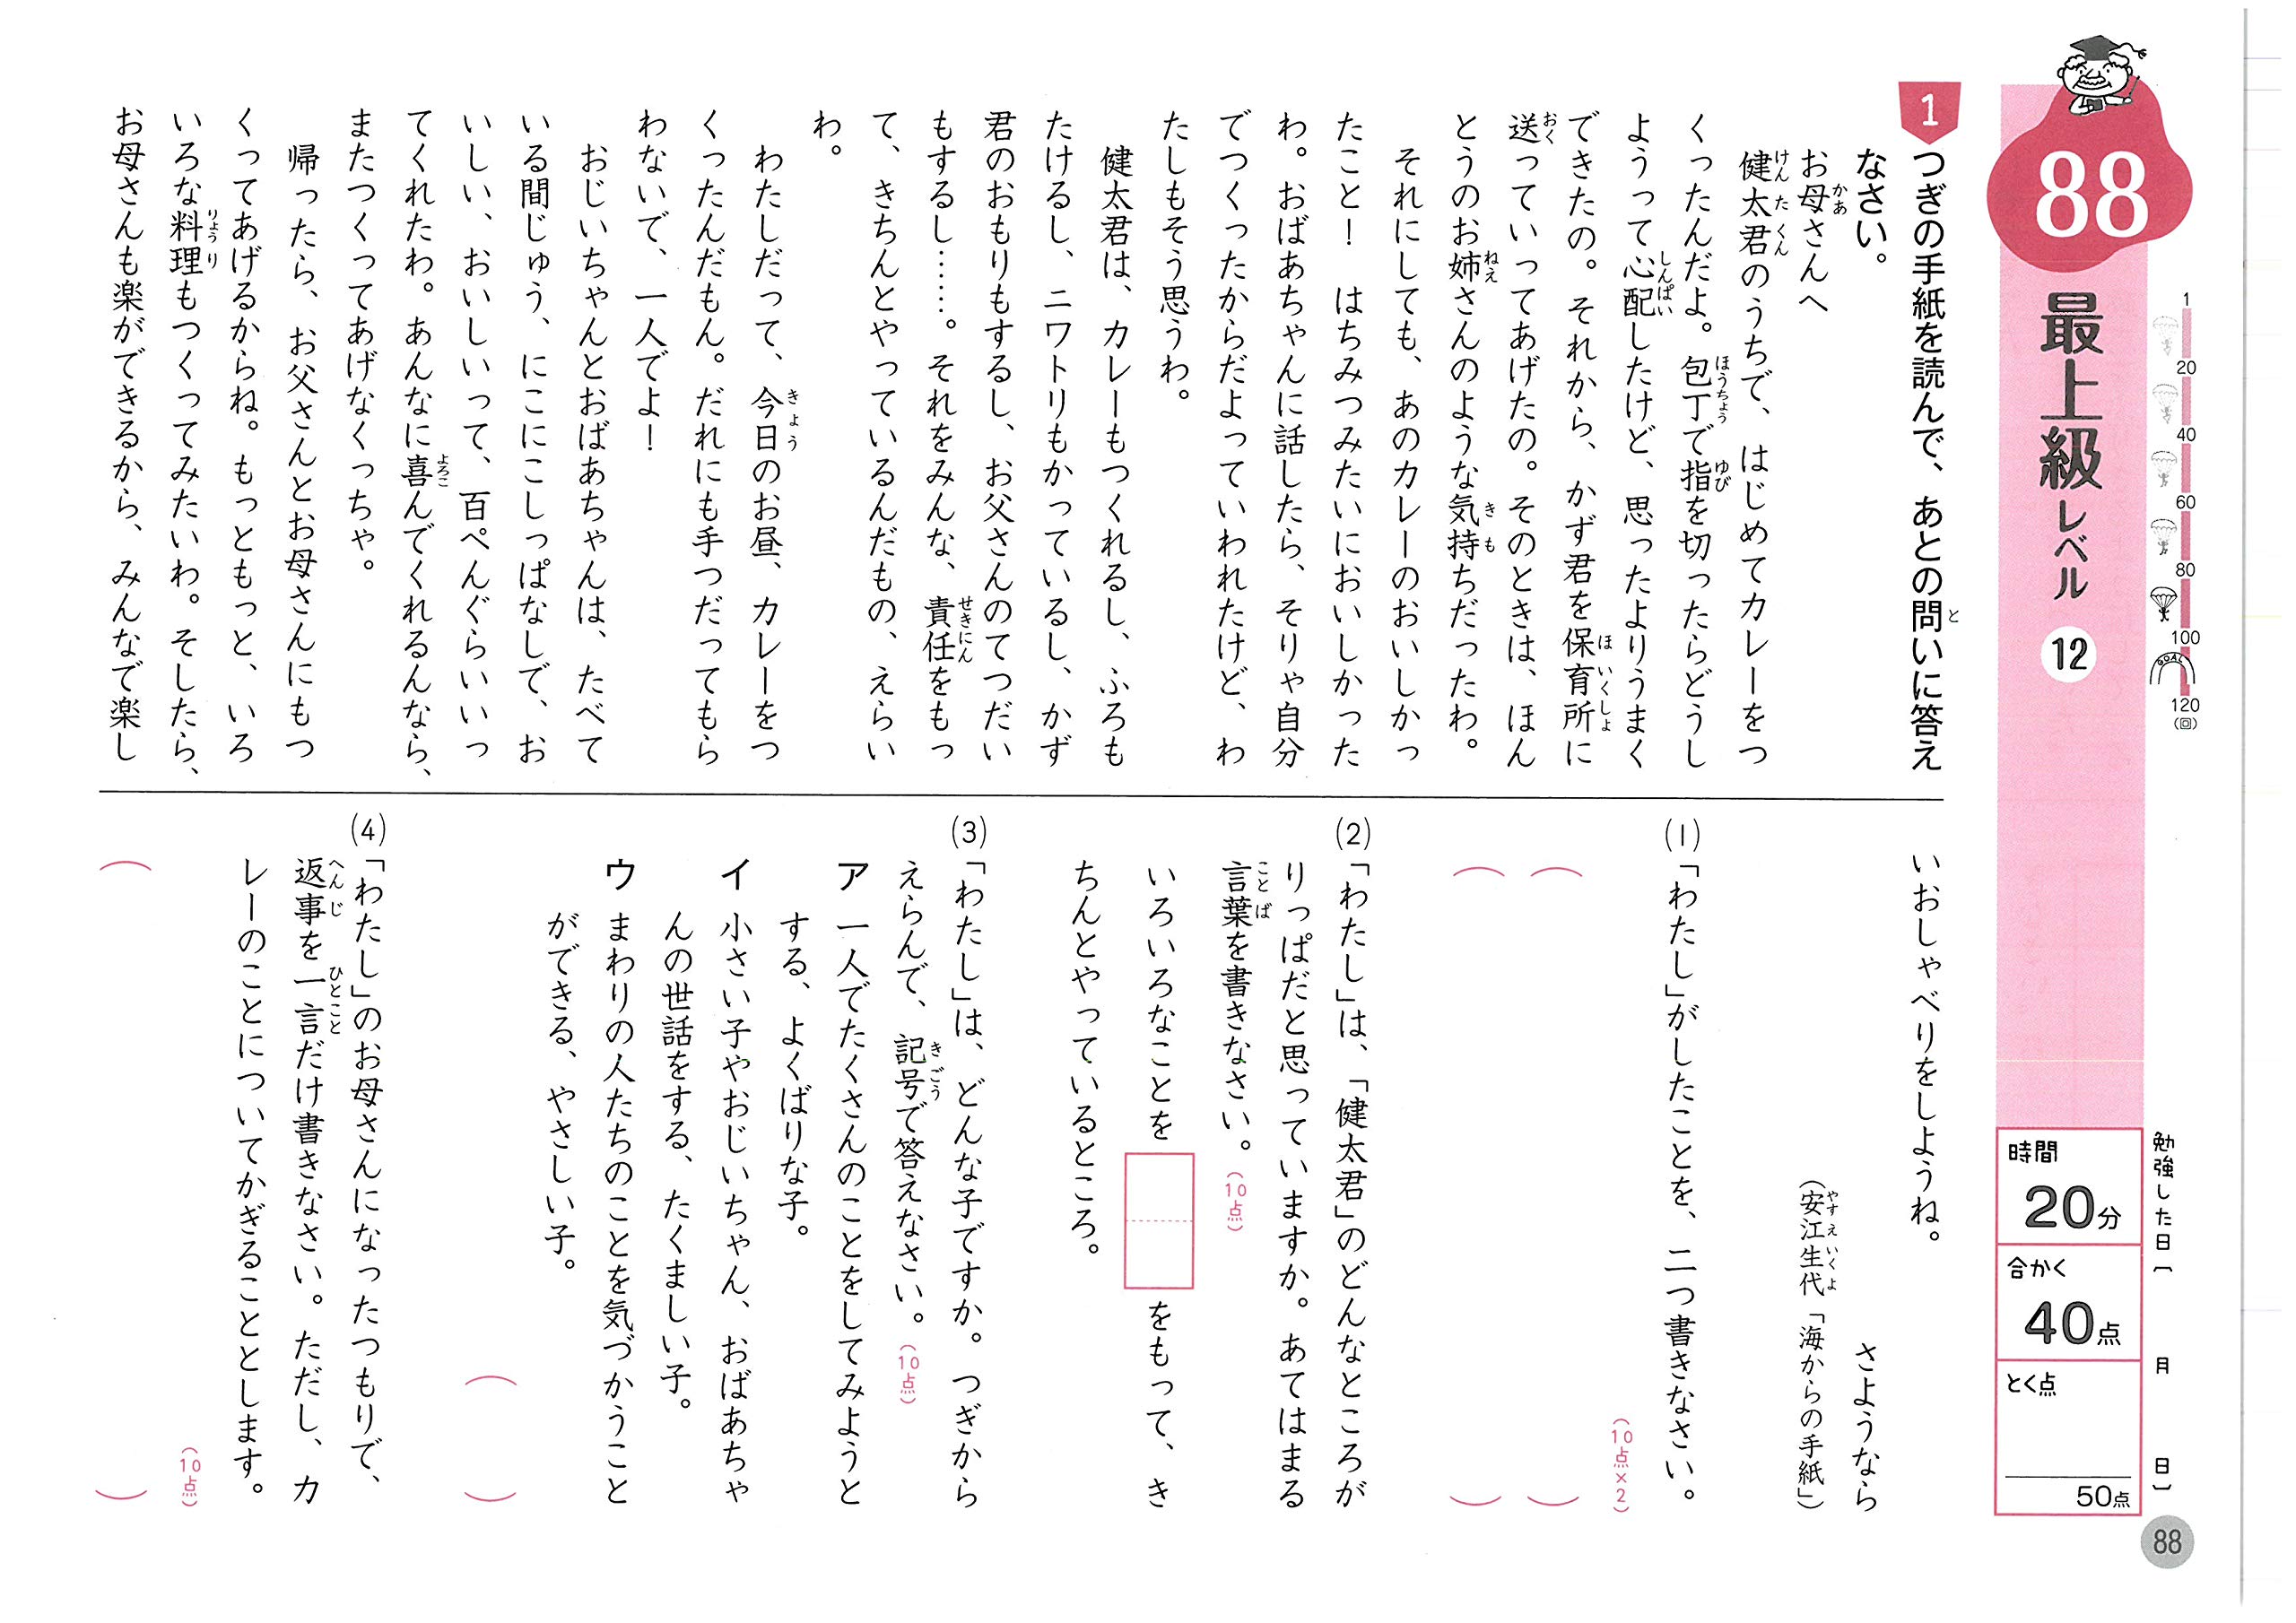 88
最上級レベル 12
1
20
40
60
80
100
GOAL
120
(回)
勉強した日〔　月　日〕
時間
20分
合かく
40点
とく点
50点
1 つぎの手紙を読んで、あとの問いに答え
なさい。
お母さんへ
健太君のうちで、はじめてカレーをつ
くったんだよ。包丁で指を切ったらどうし
ようって心配したけど、思ったよりうまく
できたの。それから、かず君を保育所に
送っていってあげたの。そのときは、ほん
とうのお姉さんのような気持ちだったわ。
それにしても、あのカレーのおいしかっ
たこと！　はちみつみたいにおいしかった
わ。おばあちゃんに話したら、そりゃ自分
でつくったからだよっていわれたけど、わ
たしもそう思うわ。
健太君は、カレーもつくれるし、ふろも
たけるし、ニワトリもかっているし、かず
君のおもりもするし、お父さんのてつだい
もするし……。それをみんな、責任をもっ
て、きちんとやっているんだもの、えらい
わ。
わたしだって、今日のお昼、カレーをつ
くったんだもん。だれにも手つだってもら
わないで、一人でよ！
おじいちゃんとおばあちゃんは、たべて
いる間じゅう、にこにこしっぱなしで、お
いしい、おいしいって、百ぺんぐらいいっ
てくれたわ。あんなに喜んでくれるんなら、
またつくってあげなくっちゃ。
帰ったら、お父さんとお母さんにもつ
くってあげるからね。もっともっと、いろ
いろな料理もつくってみたいわ。そしたら、
お母さんも楽ができるから、みんなで楽し
いおしゃべりをしようね。
さようなら
（安江生代「海からの手紙」）
(1)「わたし」がしたことを、二つ書きなさい。
（10点×2）
(2)「わたし」は、「健太君」のどんなところが
りっぱだと思っていますか。あてはまる
言葉を書きなさい。（10点）
いろいろなことを　をもって、き
ちんとやっているところ。
(3)「わたし」は、どんな子ですか。つぎから
えらんで、記号で答えなさい。（10点）
ア 一人でたくさんのことをしてみようと
する、よくばりな子。
イ 小さい子やおじいちゃん、おばあちゃ
んの世話をする、たくましい子。
ウ まわりの人たちのことを気づかうこと
ができる、やさしい子。
(4)「わたし」のお母さんになったつもりで、
返事を一言だけ書きなさい。ただし、カ
レーのことについてかぎることとします。
（10点）
88